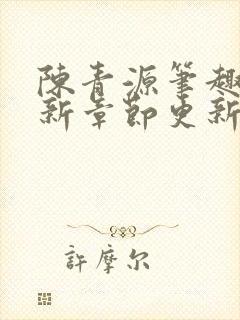 陳青源筆趣
新章節更新
許摩尔